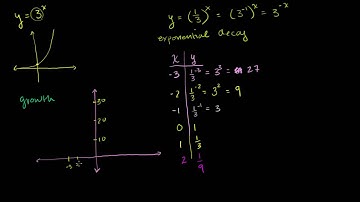 y = (3)^x
y = (1/3)^x = (3^-1)^x = 3^-x
exponential decay
growth
x y
-3 1/3^-3 = 3^3 = 27
-2 1/3^-2 = 3^2 = 9
-1 1/3^-1 = 3
0 1
1 1/3
2 1/9
30
20
10
-3